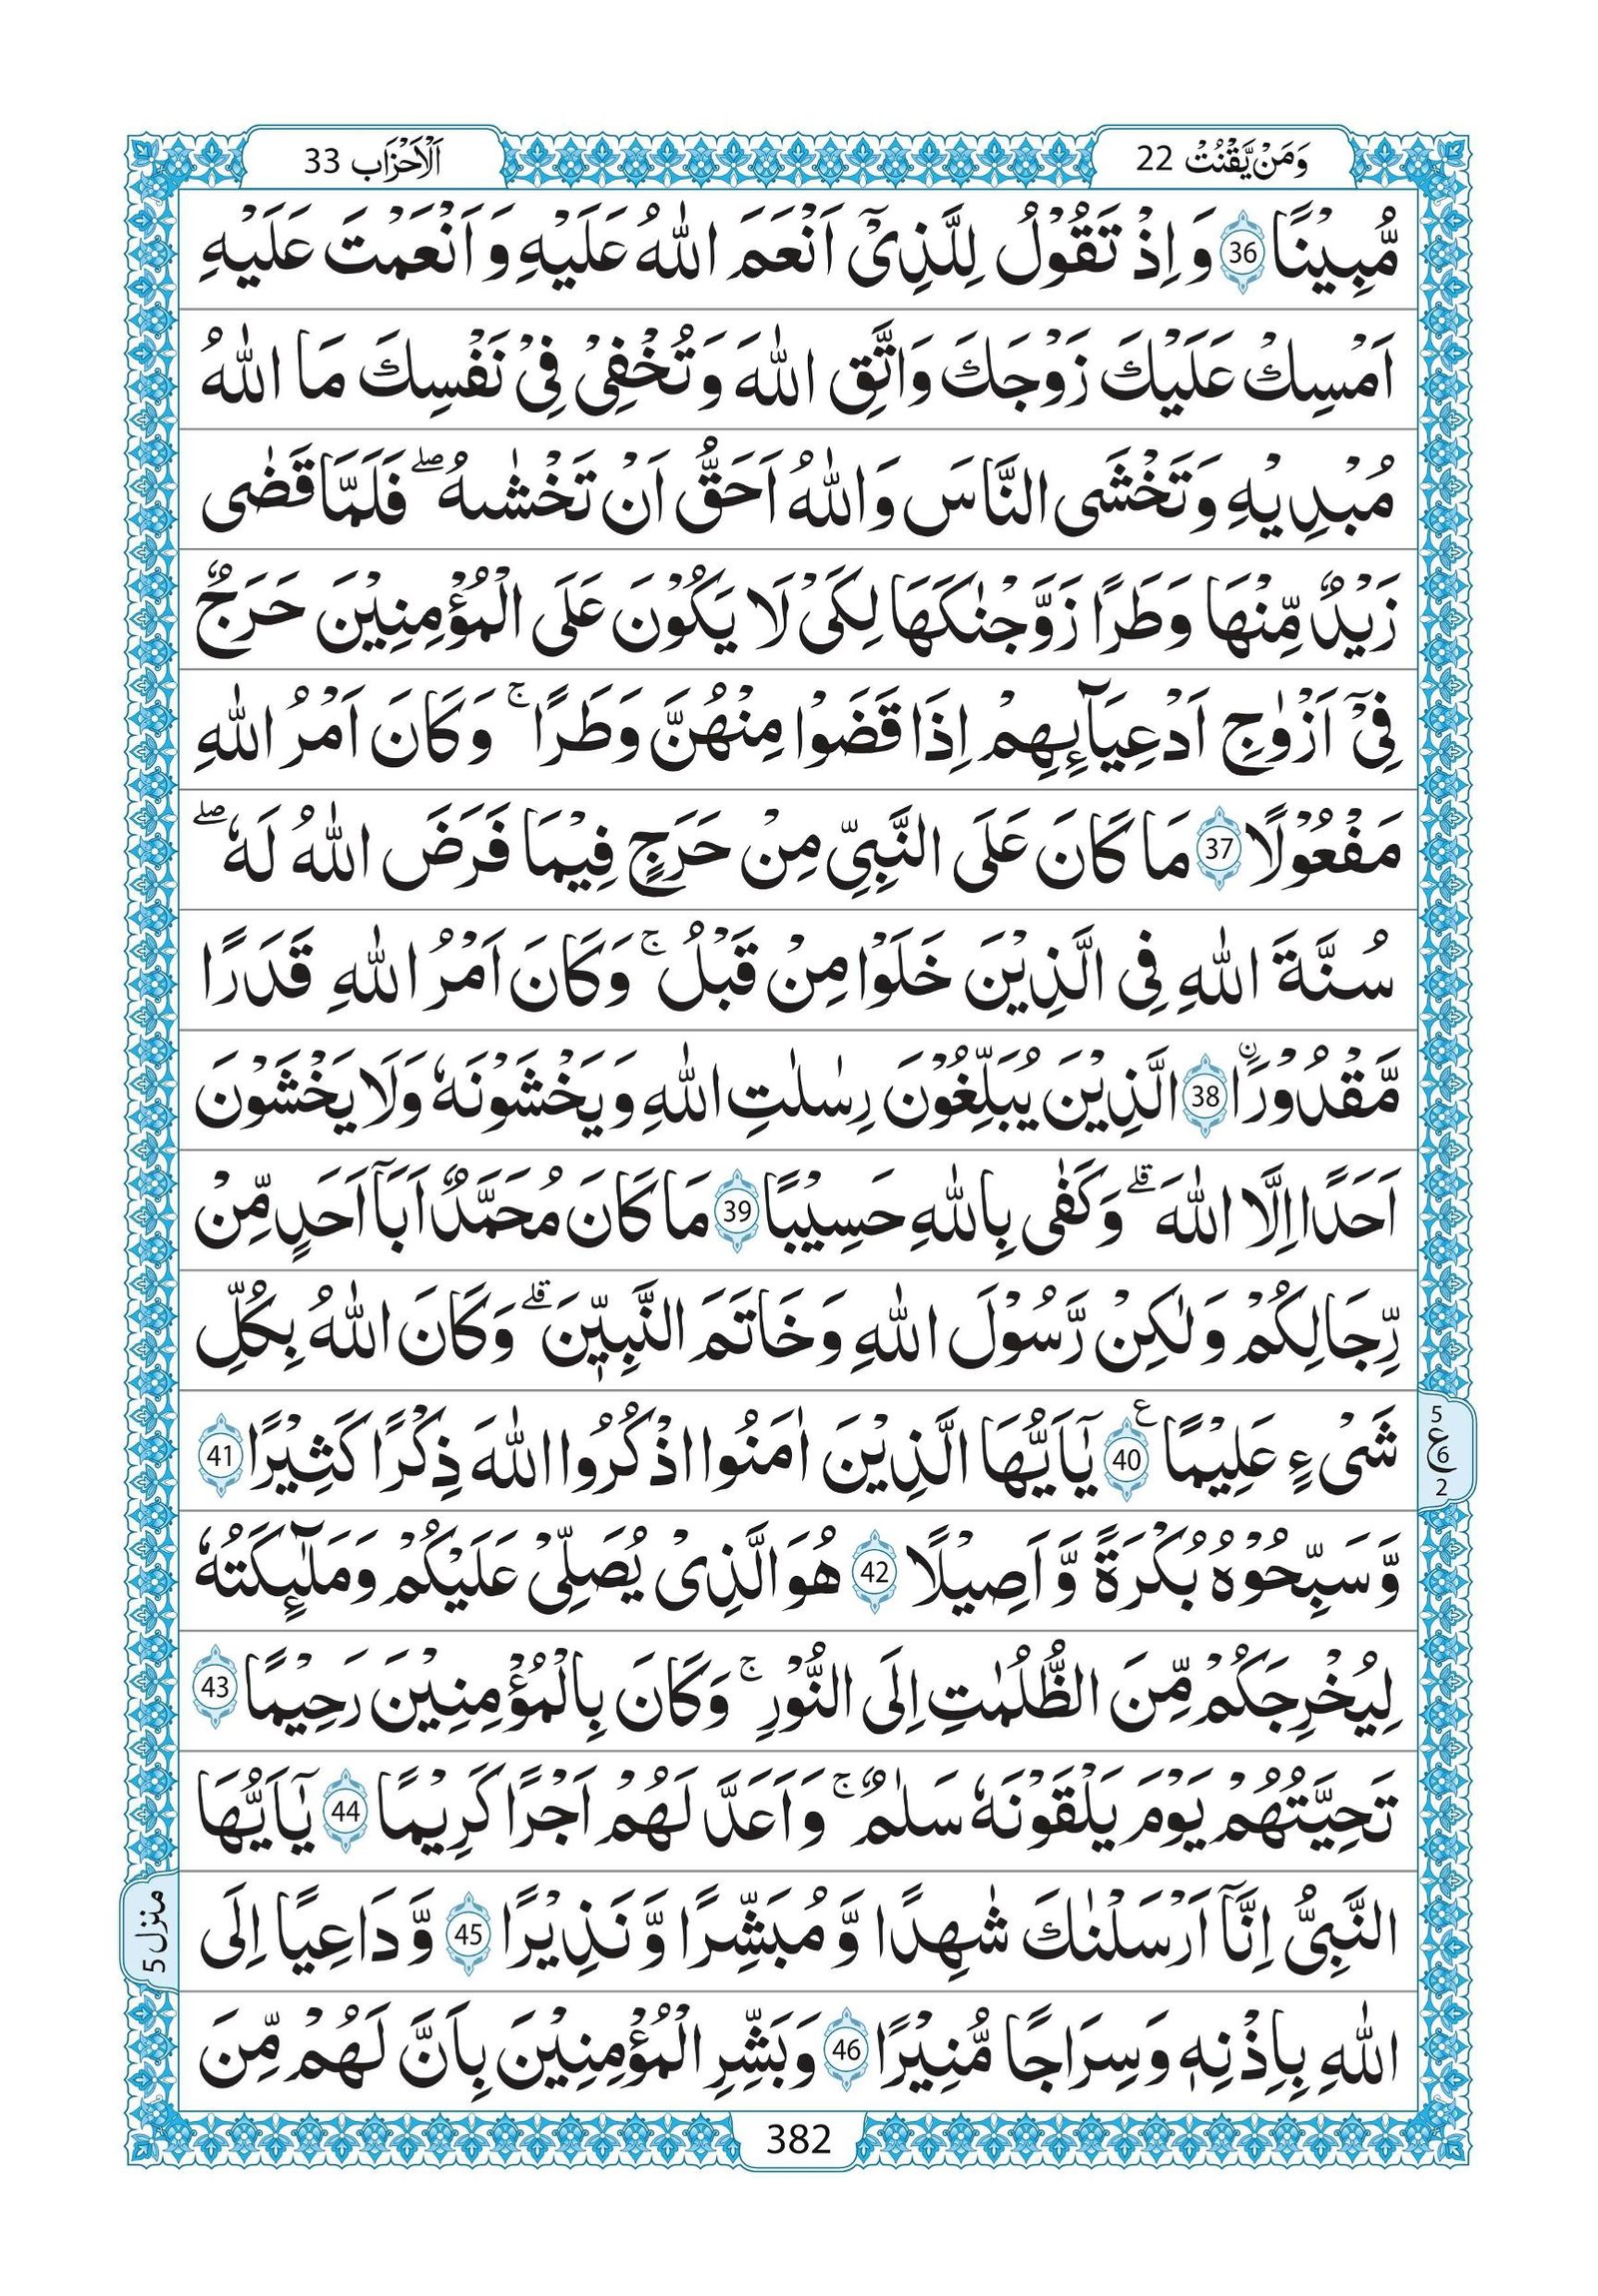 وَمَنْ يَّقْنُتْ 22
اَلْاَحْزَاب 33
مُّبِيْنًا 36 وَ اِذْ تَقُوْلُ لِلَّذِىْۤ اَنْعَمَ اللّٰهُ عَلَيْهِ وَ اَنْعَمْتَ عَلَيْهِ
اَمْسِكْ عَلَيْكَ زَوْجَكَ وَاتَّقِ اللّٰهَ وَ تُخْفِىْ فِىْ نَفْسِكَ مَا اللّٰهُ
مُبْدِيْهِ وَ تَخْشَى النَّاسَ وَاللّٰهُ اَحَقُّ اَنْ تَخْشٰٮهُ ۖ فَلَمَّا قَضٰى
زَيْدٌ مِّنْهَا وَطَرًا زَوَّجْنٰكَهَا لِكَىْ لَا يَكُوْنَ عَلَى الْمُؤْمِنِيْنَ حَرَجٌ
فِىْۤ اَزْوٰجِ اَدْعِيَآٮِٕهِمْ اِذَا قَضَوْا مِنْهُنَّ وَطَرًا ۚ وَ كَانَ اَمْرُ اللّٰهِ
مَفْعُوْلًا 37 مَا كَانَ عَلَى النَّبِىِّ مِنْ حَرَجٍ فِيْمَا فَرَضَ اللّٰهُ لَهٗ ۖ
سُنَّةَ اللّٰهِ فِى الَّذِيْنَ خَلَوْا مِنْ قَبْلُ ۚ وَكَانَ اَمْرُ اللّٰهِ قَدَرًا
مَّقْدُوْرًا ۙ 38 الَّذِيْنَ يُبَلِّغُوْنَ رِسٰلٰتِ اللّٰهِ وَيَخْشَوْنَهٗ وَلَا يَخْشَوْنَ
اَحَدًا اِلَّا اللّٰهَ ۗ وَكَفٰى بِاللّٰهِ حَسِيْبًا 39 مَا كَانَ مُحَمَّدٌ اَبَاۤ اَحَدٍ مِّنْ
رِّجَالِكُمْ وَلٰكِنْ رَّسُوْلَ اللّٰهِ وَخَاتَمَ النَّبِيّٖنَ ۗ وَكَانَ اللّٰهُ بِكُلِّ
شَىْءٍ عَلِيْمًا 40 ع يٰۤاَيُّهَا الَّذِيْنَ اٰمَنُوا اذْكُرُوا اللّٰهَ ذِكْرًا كَثِيْرًا 41
5 ع 6 2
وَّ سَبِّحُوْهُ بُكْرَةً وَّ اَصِيْلًا 42 هُوَ الَّذِىْ يُصَلِّىْ عَلَيْكُمْ وَمَلٰٓٮِٕكَتُهٗ
لِيُخْرِجَكُمْ مِّنَ الظُّلُمٰتِ اِلَى النُّوْرِ ۚ وَكَانَ بِالْمُؤْمِنِيْنَ رَحِيْمًا 43
تَحِيَّتُهُمْ يَوْمَ يَلْقَوْنَهٗ سَلٰمٌ ۚ وَاَعَدَّ لَهُمْ اَجْرًا كَرِيْمًا 44 يٰۤاَيُّهَا
النَّبِىُّ اِنَّاۤ اَرْسَلْنٰكَ شٰهِدًا وَّ مُبَشِّرًا وَّ نَذِيْرًا 45 وَّ دَاعِيًا اِلَى
منزل 5
اللّٰهِ بِاِذْنِهٖ وَ سِرَاجًا مُّنِيْرًا 46 وَ بَشِّرِ الْمُؤْمِنِيْنَ بِاَنَّ لَهُمْ مِّنَ
382